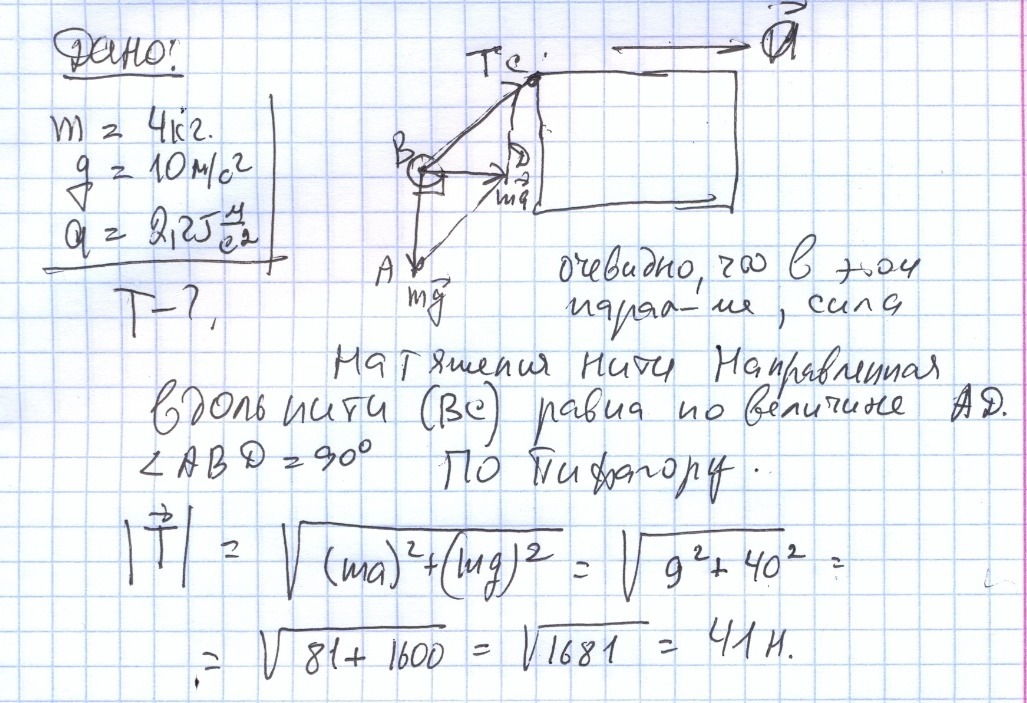 Дано:
m = 4кг.
g = 10 м/с²
a = 2,25 м/с²
T-?
T C
a
B
D
ma
A
mg
очевидно, что в этом
парал-ме, сила
натяжения нити направленная
вдоль нити (BC) равна по величине AD.
∠ABD = 90° По Пифагору.
|T| = √(ma)²+(mg)² = √9²+40² =
= √81+1600 = √1681 = 41 н.